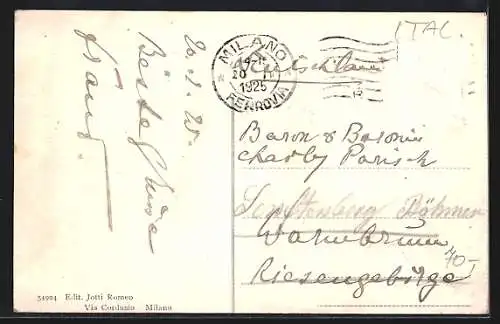 ITAL.
MILANO
20 III
1925
FERROVIA
Deutschland
20.3.25.
Beste Grüsse
Franz
Baron & Baronin
Charly Parish
Senftenberg Böhmen
Warmbrunn
Riesengebirge
70-
34924 Edit. Jotti Romeo
Via Cordusio Milano